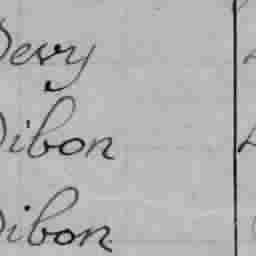 Devy
Dibon
Dibon